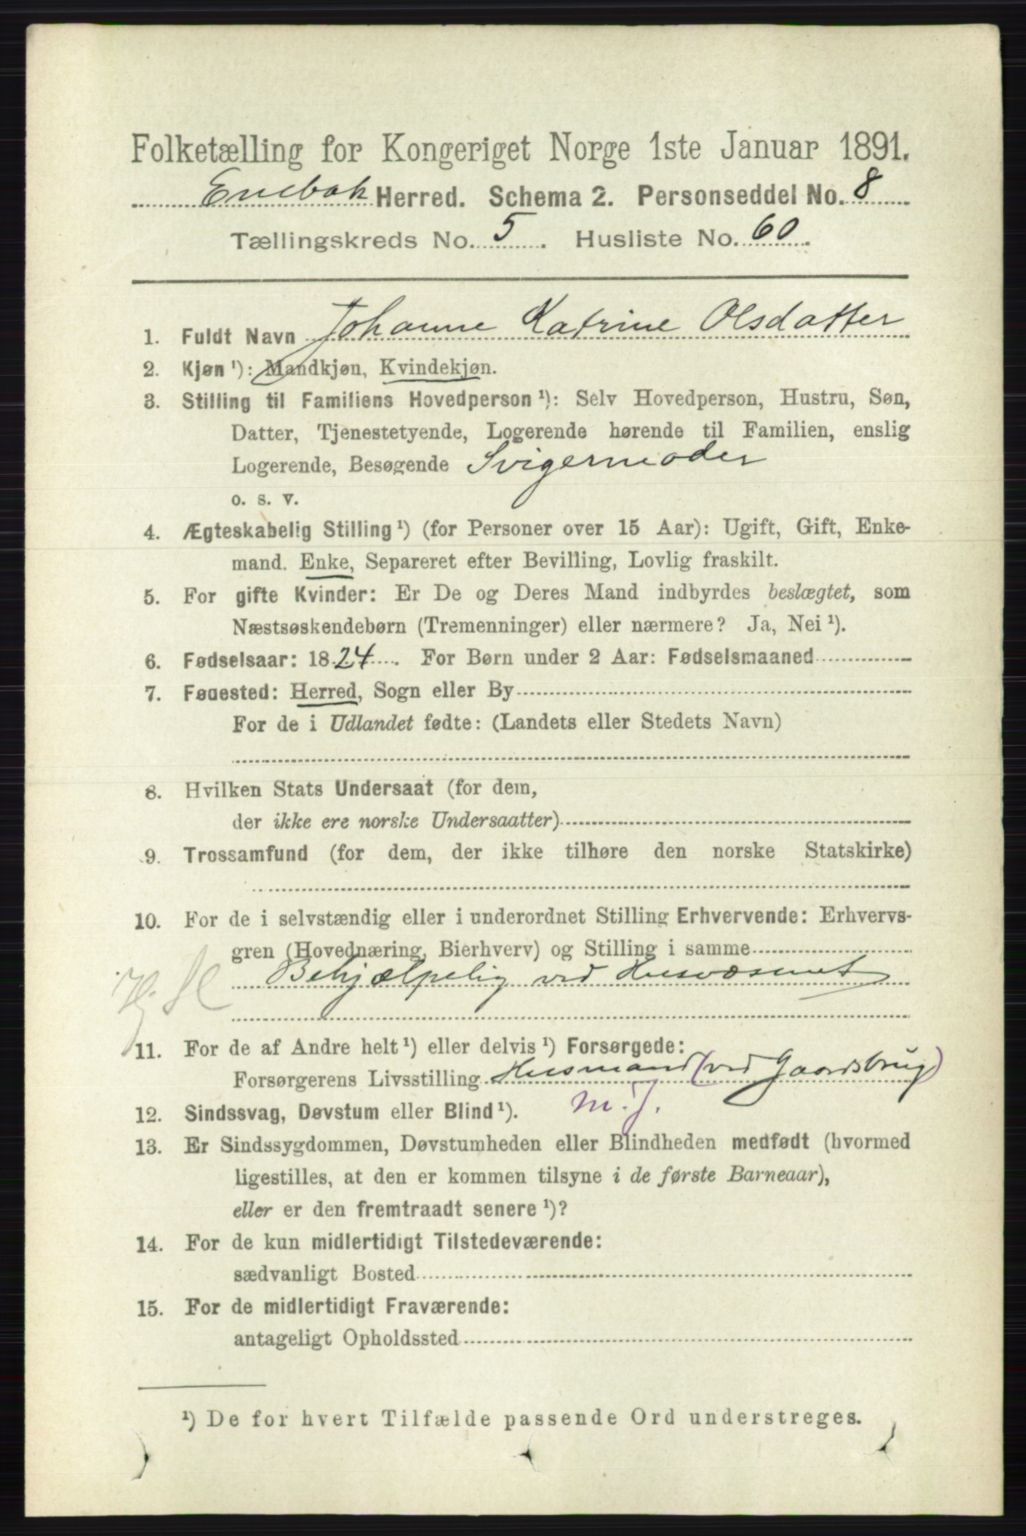 Folketælling for Kongeriget Norge 1ste Januar 1891.
Enebak Herred. Schema 2. Personseddel No. 8
Tællingskreds No. 5. Husliste No. 60.
1. Fuldt Navn Johanne Katrine Olsdatter
2. Kjøn ¹): Mandkjøn, Kvindekjøn.
3. Stilling til Familiens Hovedperson ¹): Selv Hovedperson, Hustru, Søn,
Datter, Tjenestetyende, Logerende hørende til Familien, enslig
Logerende, Besøgende Svigermoder
o. s. v.
4. Ægteskabelig Stilling ¹) (for Personer over 15 Aar): Ugift, Gift, Enke-
mand. Enke, Separeret efter Bevilling, Lovlig fraskilt.
5. For gifte Kvinder: Er De og Deres Mand indbyrdes beslægtet, som
Næstsøskendebørn (Tremenninger) eller nærmere? Ja, Nei ¹).
6. Fødselsaar: 1824. For Børn under 2 Aar: Fødselsmaaned
7. Fødested: Herred, Sogn eller By
For de i Udlandet fødte: (Landets eller Stedets Navn)
8. Hvilken Stats Undersaat (for dem,
der ikke ere norske Undersaatter)
9. Trossamfund (for dem, der ikke tilhøre den norske Statskirke)
10. For de i selvstændig eller i underordnet Stilling Erhvervende: Erhvervs-
gren (Hovednæring, Bierhverv) og Stilling i samme
Behjælpelig ved Husvæsenet
11. For de af Andre helt ¹) eller delvis ¹) Forsørgede:
Forsørgerens Livsstilling Husmand (ved Gaardsbrug)
12. Sindssvag, Døvstum eller Blind ¹). m. J.
13. Er Sindssygdommen, Døvstumheden eller Blindheden medfødt (hvormed
ligestilles, at den er kommen tilsyne i de første Barneaar),
eller er den fremtraadt senere ¹)?
14. For de kun midlertidigt Tilstedeværende:
sædvanligt Bosted
15. For de midlertidigt Fraværende:
antageligt Opholdssted
¹) De for hvert Tilfælde passende Ord understreges.